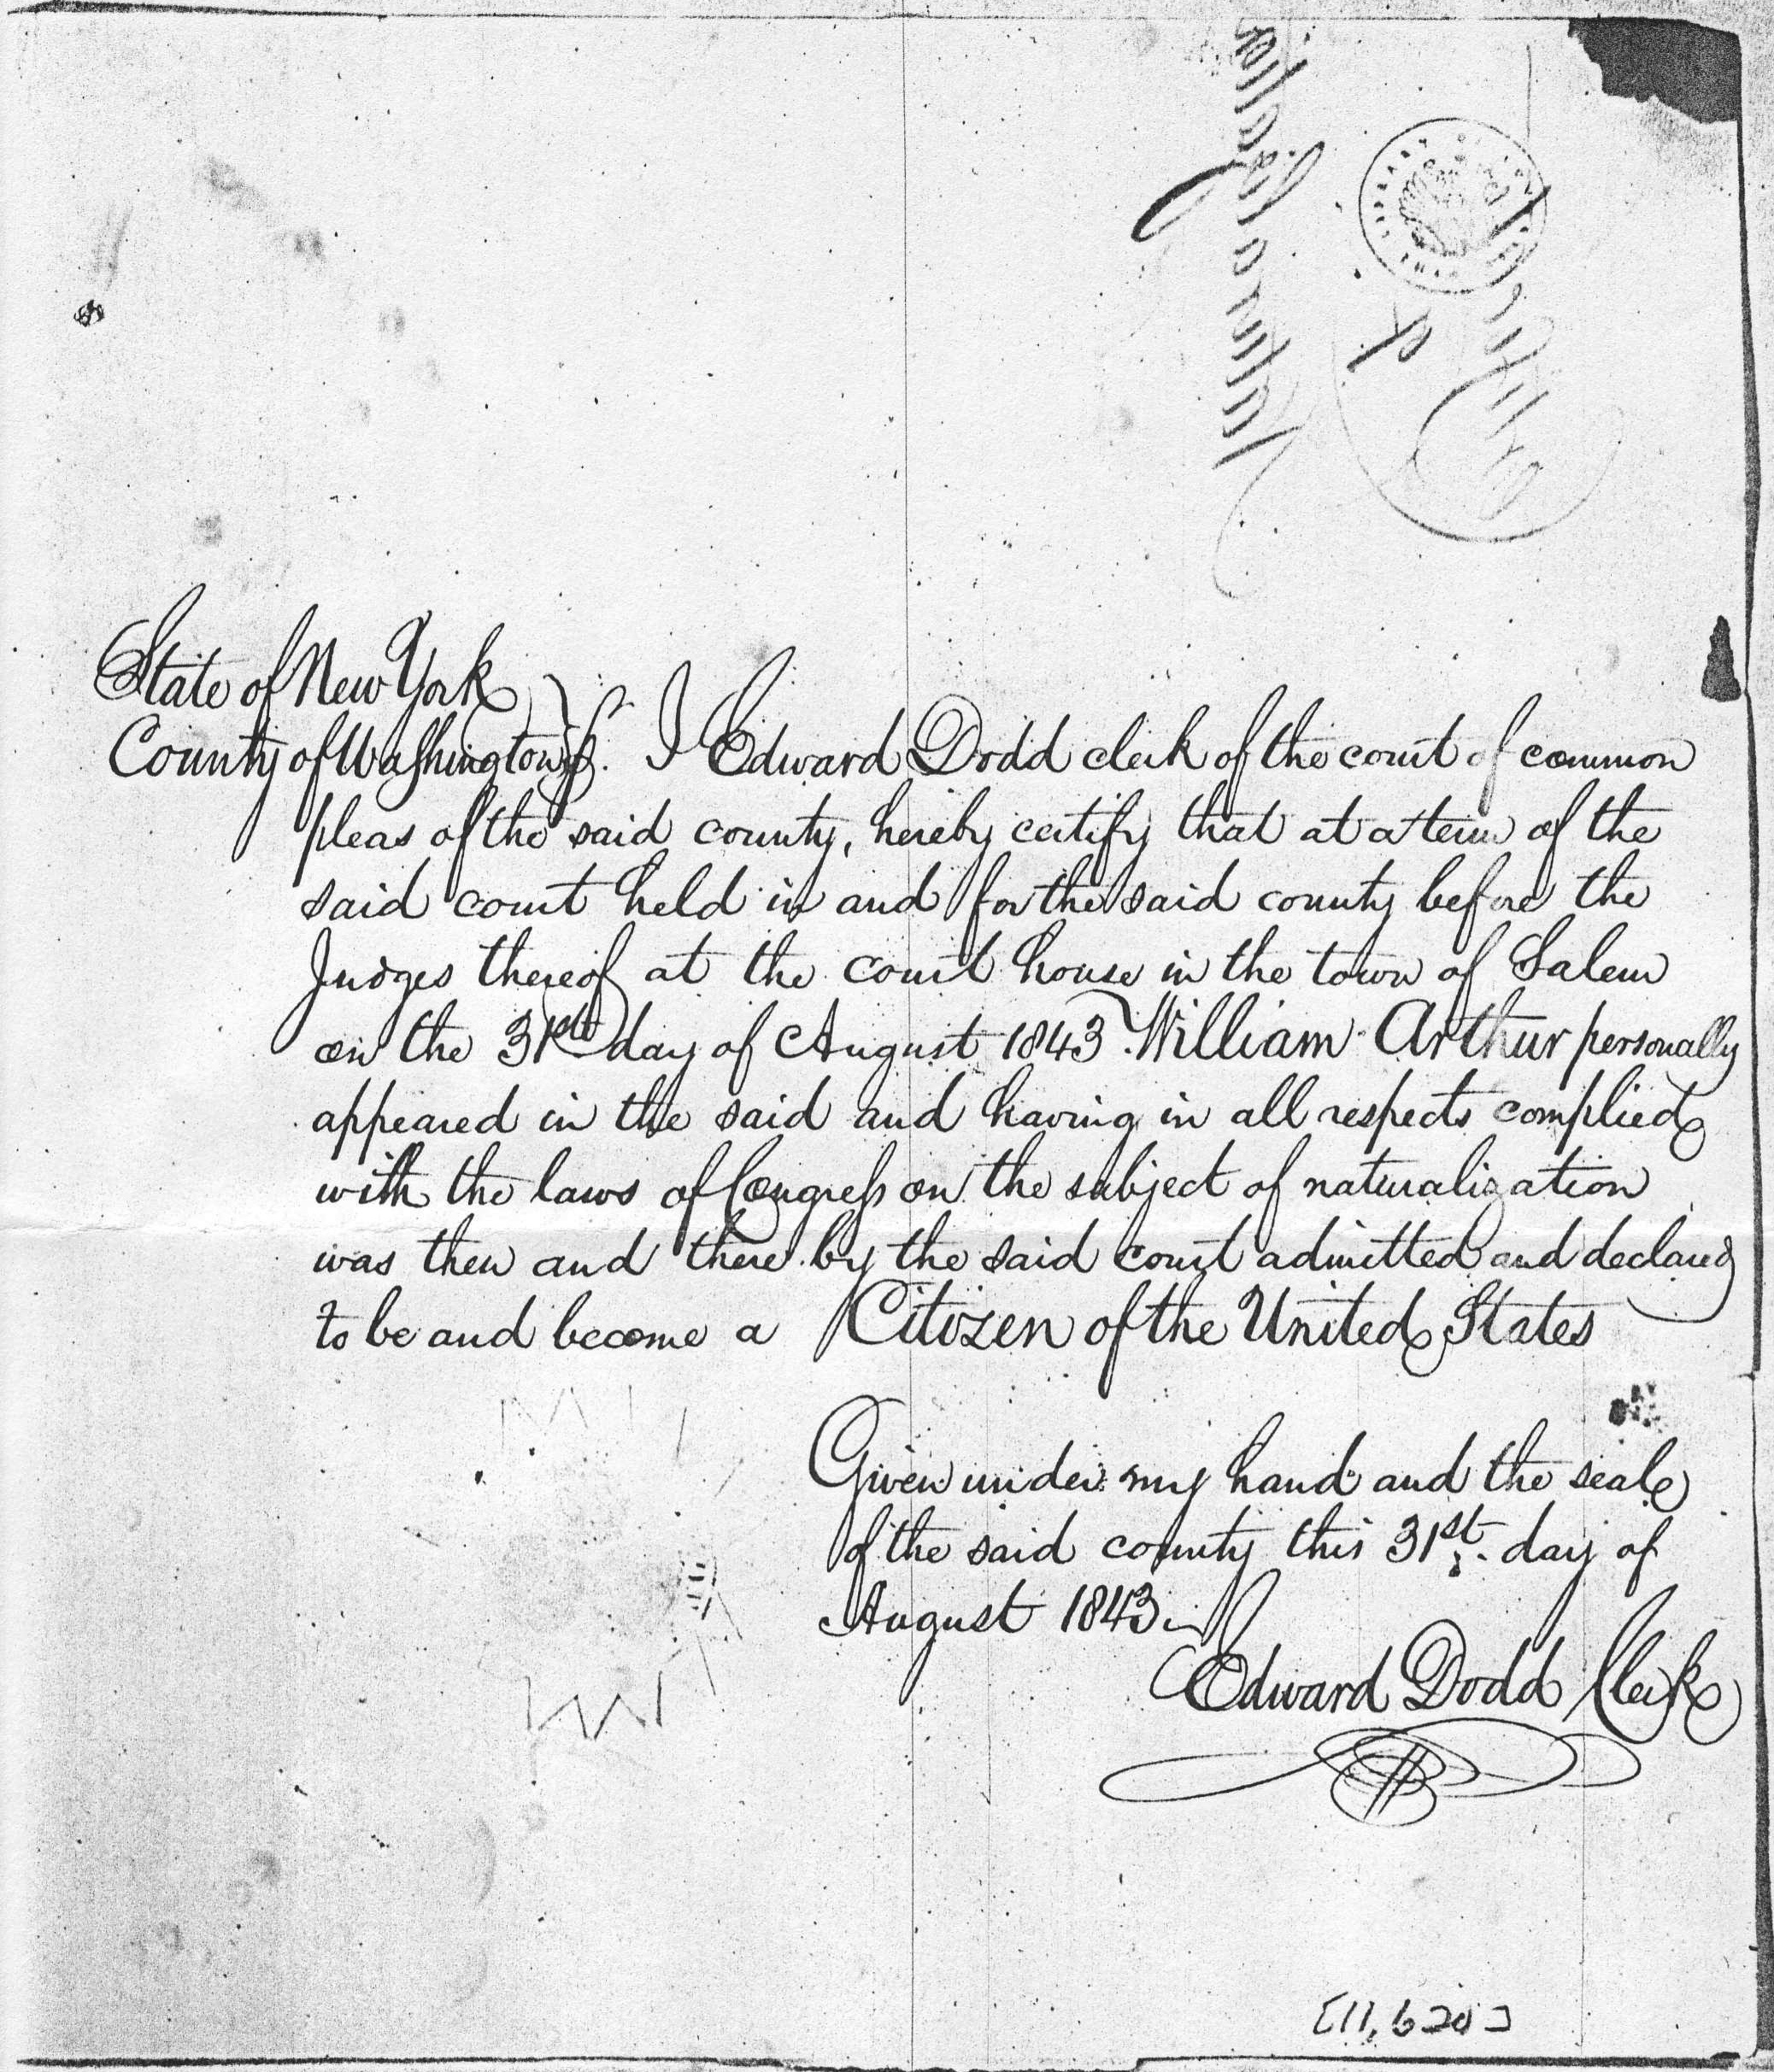 State of New York
County of Washington ss. I Edward Dodd clerk of the court of common
pleas of the said county, hereby certify that at a term of the
said court held in and for the said county before the
Judges thereof at the court house in the town of Salem
on the 31st day of August 1843 William Arthur personally
appeared in the said and having in all respects complied
with the laws of Congress on the subject of naturalization
was then and there by the said court admitted and declared
to be and become a Citizen of the United States
Given under my hand and the seal
of the said county this 31st day of
August 1843
Edward Dodd Clerk
[11,620]